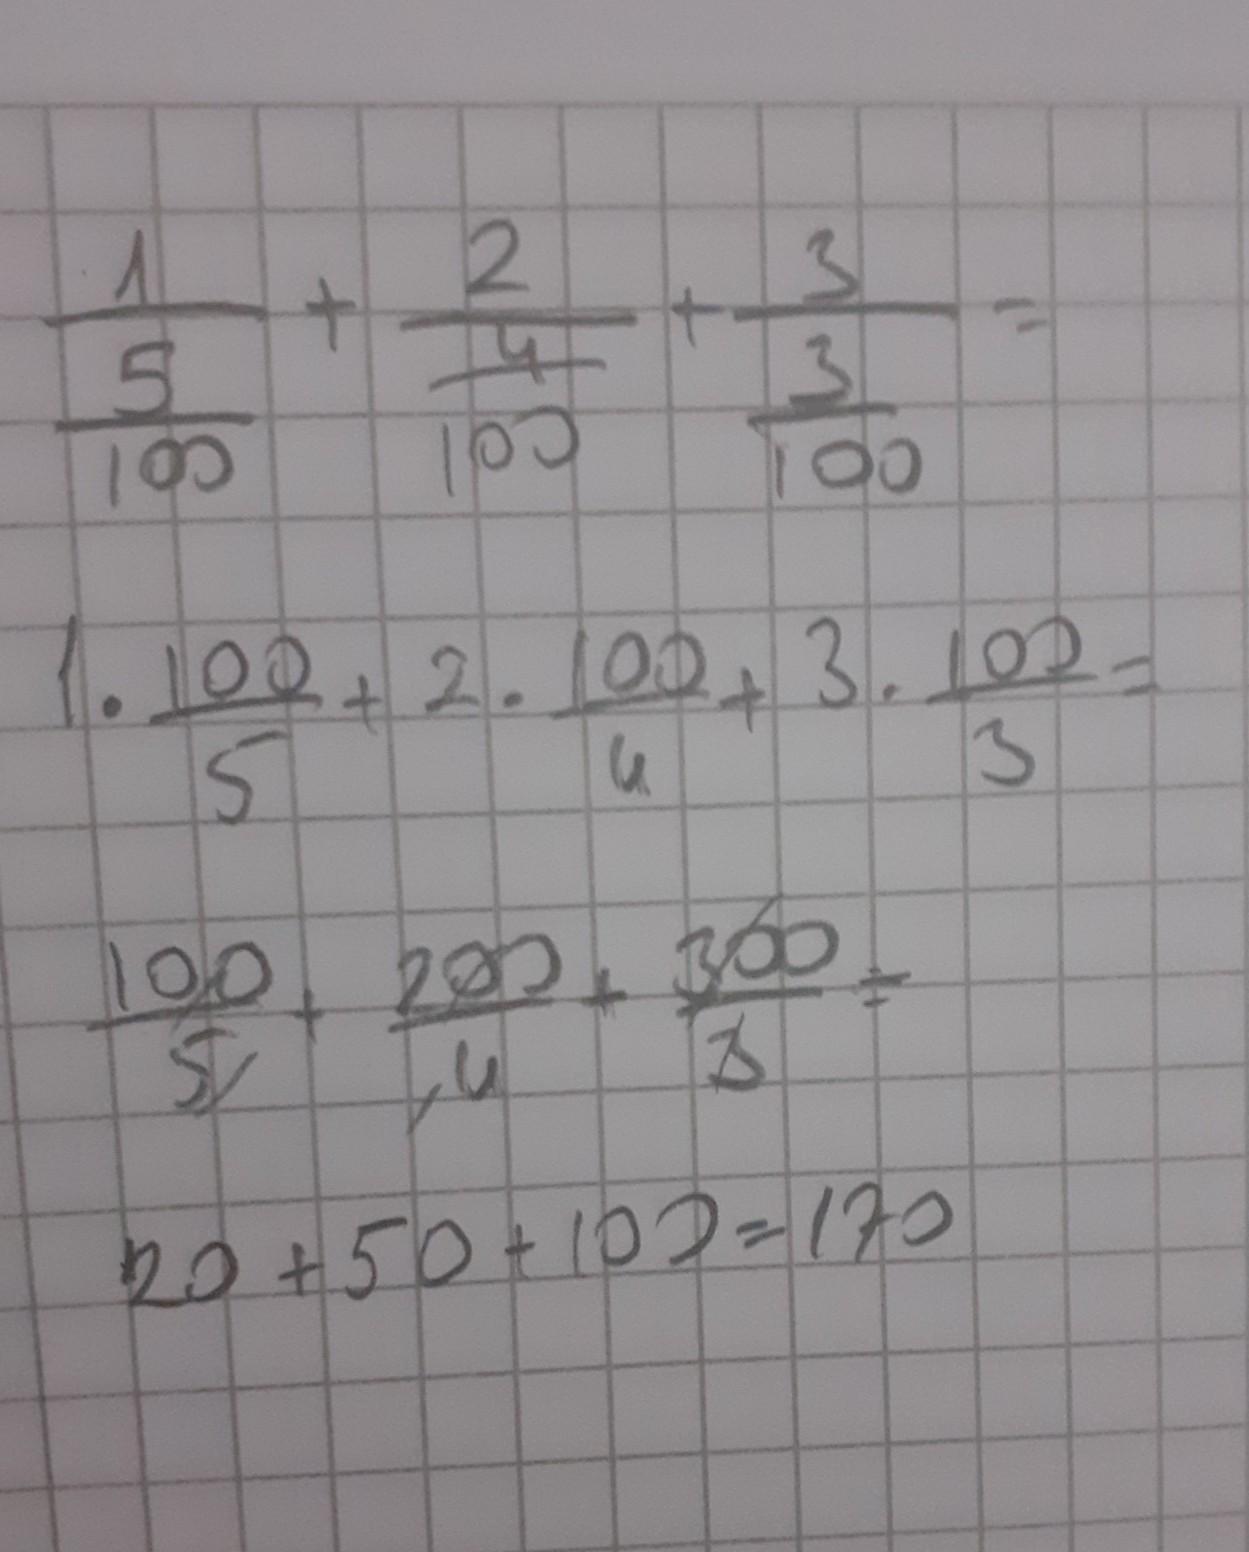 1/(5/100) + 2/(4/100) + 3/(3/100) =
1 · 100/5 + 2 · 100/4 + 3 · 100/3 =
100/5 + 200/4 + 300/3 =
20 + 50 + 100 = 170